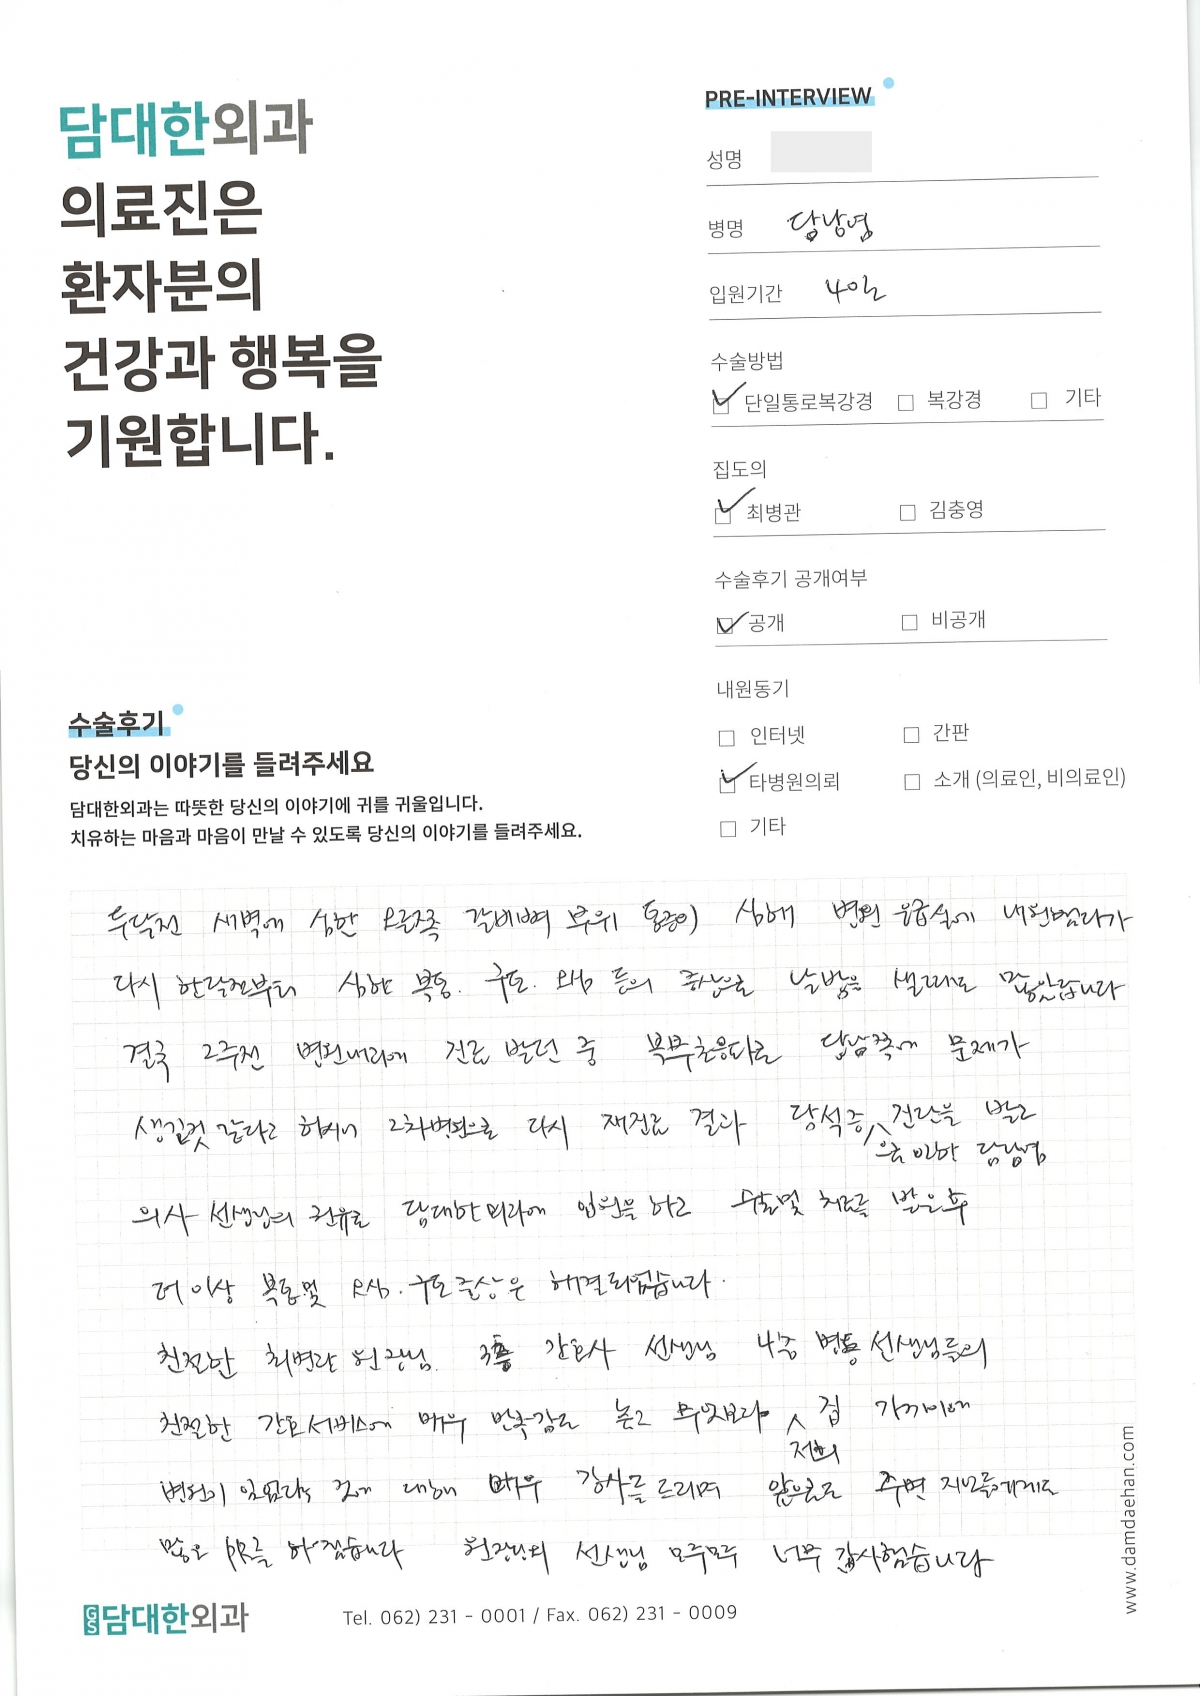 담대한외과
의료진은
환자분의
건강과 행복을
기원합니다.
PRE-INTERVIEW
성명
병명 담낭염
입원기간 4일
수술방법
단일통로복강경 복강경 기타
집도의
최병관 김충영
수술후기 공개여부
공개 비공개
내원동기
인터넷 간판
타병원의뢰 소개 (의료인, 비의료인)
기타
수술후기
당신의 이야기를 들려주세요
담대한외과는 따뜻한 당신의 이야기에 귀를 귀울입니다.
치유하는 마음과 마음이 만날 수 있도록 당신의 이야기를 들려주세요.
두달전 새벽에 심한 오른쪽 갈비뼈 부위 통증이 심해 병원 응급실에 내원했다가
다시 한달전부터 심한 복통. 구토. 오심 등의 증상으로 날밤을 샐때도 많았답니다
결국 2주전 병원내과에 진료 받던 중 복부초음파로 담낭쪽에 문제가
생긴것 같다고 하시니 2차병원으로 다시 재진료 결과 담석증 진단을 받고
으로 인한 담낭염
의사 선생님의 권유로 담대한외과에 입원을 하고 수술및 치료를 받은후
더 이상 복통및 오심. 구토 증상은 해결되었습니다.
친절한 최병관 원장님. 3층 간호사 선생님 4층 병동 선생님들의
친절한 간호서비스에 매우 만족감도 높고 무엇보다 집 가까이에
저희
병원이 있었다는 것에 대해 매우 감사를 드리며 앞으로도 주변 지인들에게도
많은 PR을 하겠습니다 원장님외 선생님 모두모두 너무 감사했습니다
GS 담대한외과
Tel. 062) 231 - 0001 / Fax. 062) 231 - 0009
www.damdaehan.com